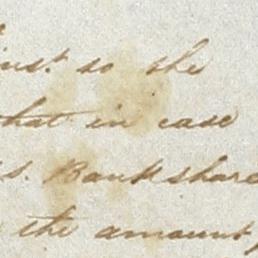 inst. so she
that in case
s. Bank share
the amount